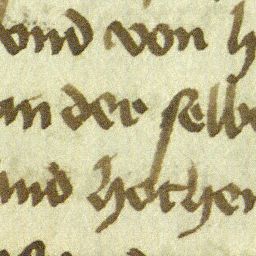 vnd von h
an der selbe
und hochen